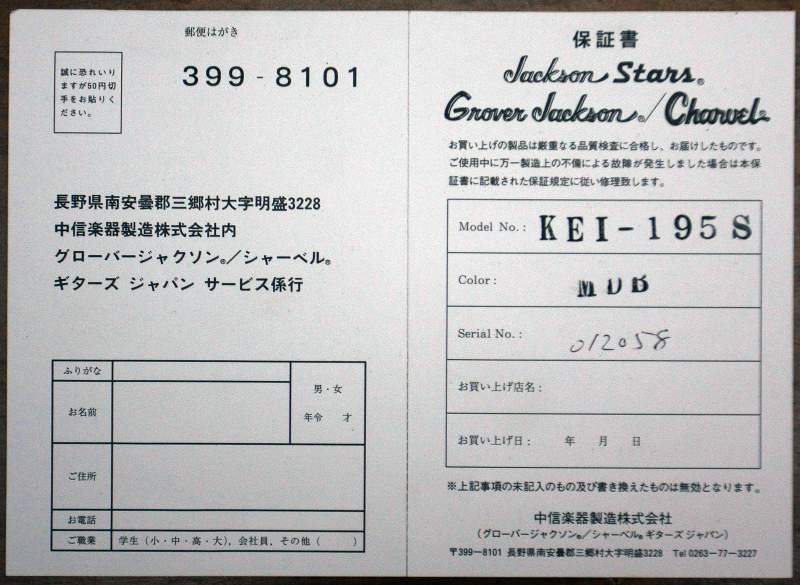 郵便はがき
誠に恐れいり
ますが50円切
手をお貼りく
ださい。
399-8101
長野県南安曇郡三郷村大字明盛3228
中信楽器製造株式会社内
グローバージャクソン®／シャーベル®
ギターズ ジャパン サービス係行
ふりがな
お名前
男・女
年令 才
ご住所
お電話
ご職業 学生（小・中・高・大），会社員，その他（ ）
保証書
Jackson Stars®
Grover Jackson®／Charvel®
お買い上げの製品は厳重なる品質検査に合格し、お届けしたものです。
ご使用中に万一製造上の不備による故障が発生しました場合は本保
証書に記載された保証規定に従い修理致します。
Model No.: KEI-195S
Color: MDB
Serial No.: 012058
お買い上げ店名:
お買い上げ日: 年 月 日
※上記事項の未記入のもの及び書き換えたものは無効となります。
中信楽器製造株式会社
(グローバージャクソン®／シャーベル® ギターズ ジャパン)
〒399-8101 長野県南安曇郡三郷村大字明盛3228 Tel 0263-77-3227